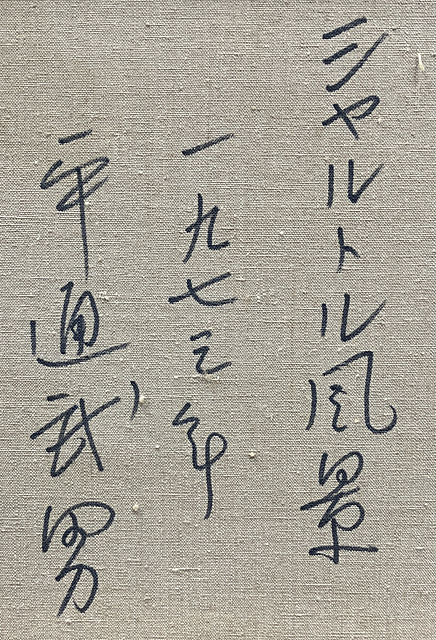 シャルトル風景
一九七三年
平通武男